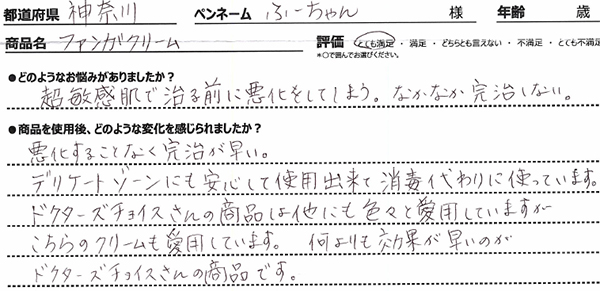 都道府県 神奈川 ペンネーム ふーちゃん 様 年齢 歳
商品名 ファンガクリーム 評価 とても満足・満足・どちらとも言えない・不満足・とても不満足
*○で囲んでお選びください。
●どのようなお悩みがありましたか?
超敏感肌で治る前に悪化をしてしまう。なかなか完治しない。
●商品を使用後、どのような変化を感じられましたか?
悪化することなく完治が早い。
デリケートゾーンにも安心して使用出来て消毒代わりに使っています。
ドクターズチョイスさんの商品は他にも色々と愛用していますが
こちらのクリームも愛用しています。 何よりも効果が早いのが
ドクターズチョイスさんの商品です。